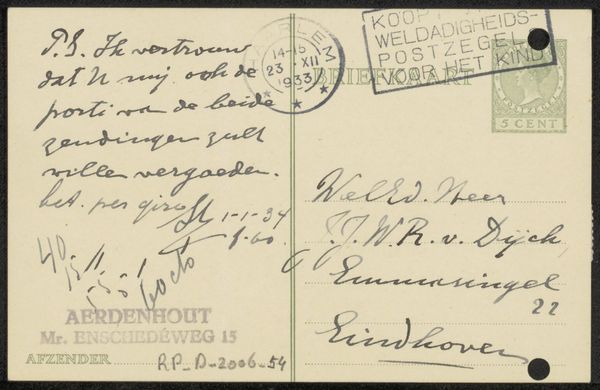 P.S. Ik vertrouw
dat U mij ook de
porti van de beide
zendingen zult
willen vergoeden.
bet. per giro
1-1-34
HAARLEM
14-15
23 XII
1933
KOOP
WELDADIGHEIDS-
POSTZEGEL
VOOR HET KIND
BRIEFKAART
POSTZEGEL
5 CENT
WelEd. Heer
J.J.W.R. v. Dijck,
Emmasingel
22
Eindhoven
40
15
AERDENHOUT
Mr. ENSCHEDÉWEG 15
AFZENDER
RP-D-2006-54